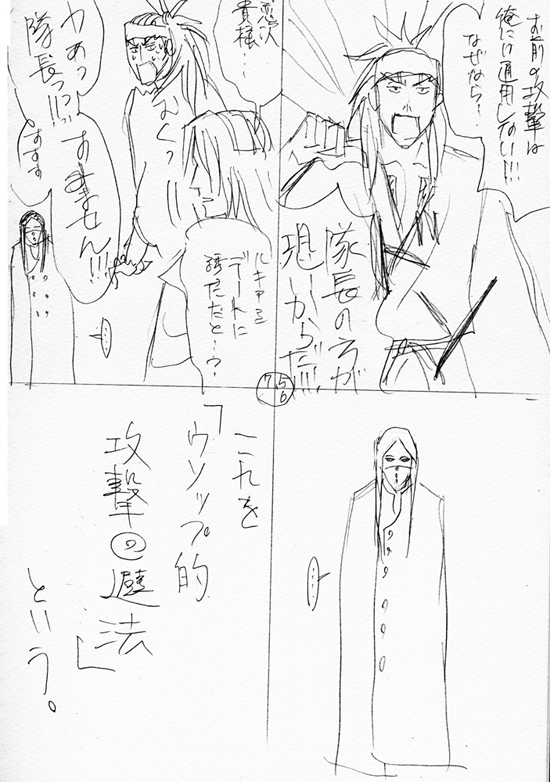 お前の攻撃は
俺には通用しない!!!
なぜなら?
隊長の方が
恐いからだ!!!
恋次
貴様…
おくっ
ルキアを
デートに
誘ただと…?
わあっっ!!!
隊長っっ!!!
すません!!!
すすす
…
7 5 6
…
これを
「ウソップ的
攻撃の避法」
という。